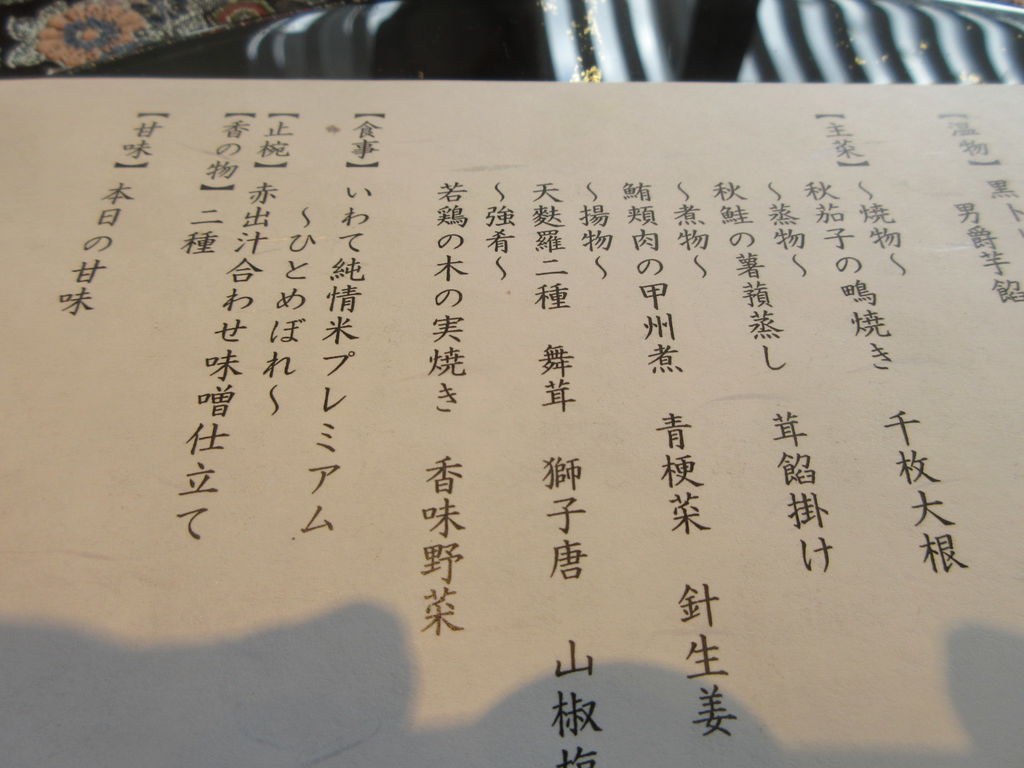 【温物】
男爵芋餡
【主菜】
～焼物～
秋茄子の鴫焼き 千枚大根
～蒸物～
秋鮭の薯蕷蒸し 茸餡掛け
～煮物～
鮪頬肉の甲州煮 青梗菜 針生姜
～揚物～
天麩羅二種 舞茸 獅子唐 山椒塩
～強肴～
若鶏の木の実焼き 香味野菜
【食事】 いわて純情米プレミアム
～ひとめぼれ～
【止椀】 赤出汁合わせ味噌仕立て
【香の物】 二種
【甘味】 本日の甘味